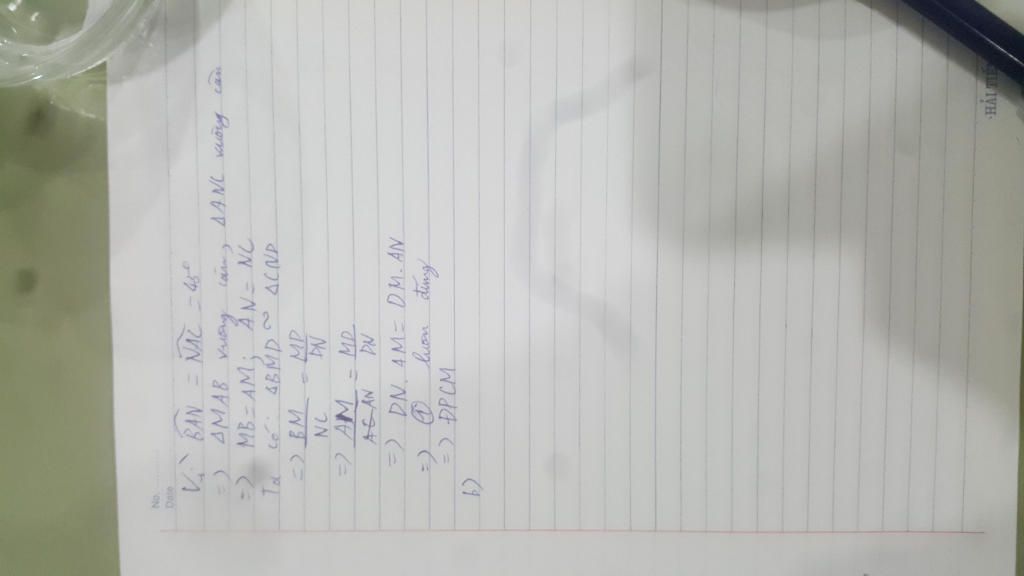 No. ..........
Date
Vì \widehat{BAN} = \widehat{NAC} = 45°
=) ΔMAB vuông cân, ΔANC vuông cân
=) MB = AM; AN = NC
Ta có: ΔBMD ∽ ΔCND
=) BM/NC = MD/DN
=) AM/AN = MD/DN
=) DN. AM = DM. AN
=) luôn đúng
=) ĐPCM
b)